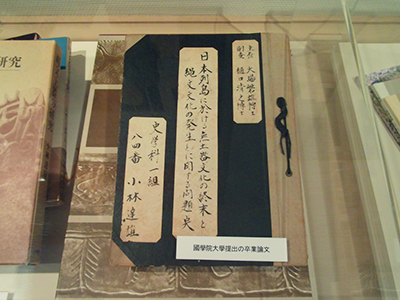 主査 大場磐雄博士
副査 樋口清之博士
日本列島に於ける無土器文化の終末と
縄文文化の発生とに関する問題点
史学科一組
八四番 小林達雄
國學院大學提出の卒業論文
研究